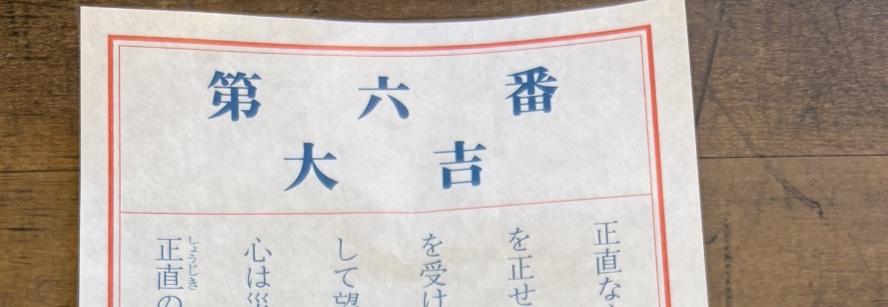 第六番
大吉
正直な
を正せ
を受け
して望
心は災
正直の
しょうじき